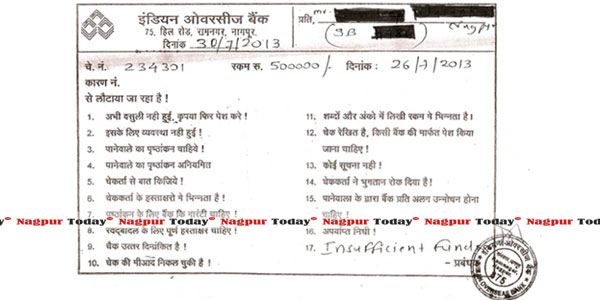 इंडियन ओवरसीज बैंक
75, हिल रोड, रामनगर, नागपुर.
दिनांक 30/7/2013
प्रति, mr
(SB
चे. नं. 234301 रकम रु. 500000/- दिनांक : 26/7/2013
कारण नं.
से लौटाया जा रहा है !
1. अभी वसुली नही हुई, कृपया फिर पेश करे !
2. इसके लिए व्यवस्था नही हुई !
3. पानेवाले का पृष्ठांकन चाहिये !
4. पानेवाले का पृष्ठांकन अनियमित
5. चेकर्ता से बात किजिये !
6. चेककर्ता के हस्ताक्षरो मे भिन्नता है !
7. पृष्ठांकन के लिए बैंक कि गारंटी चाहिए !
8. रद्दबादल के लिए पूर्ण हस्ताक्षर चाहिए !
9. चैक उत्तर दिनांकित है !
10. चेक की मीआद निकल चुकी है !
11. शब्दों और अंको में लिखी रकम मे भिन्नता है !
12. चेक रेखित है, किसी बैंक की मार्फत पेश किया
जाना चाहिए !
13. कोई सूचना नही !
14. चेककर्ता ने भुगतान रोक दिया है !
15. पानेवाला के द्वारा बैंक प्रति अलग उन्नोचन होना
चाहिए !
16. अपर्याप्त निधी !
17. Insufficient Funds
- प्रबंधक
Nagpur Today Nagpur Today Nagpur Today Nagpur Today Nagpur Today
इंडियन ओवरसीज बैंक
75
OVERSEAS BANK